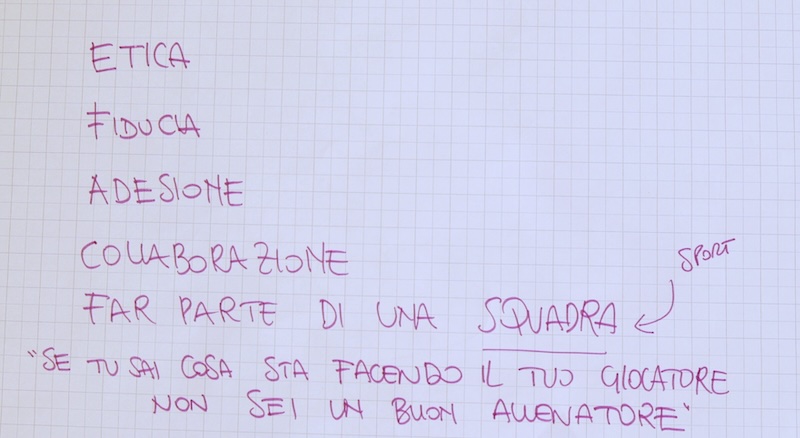 ETICA
FIDUCIA
ADESIONE
COLLABORAZIONE
SPORT
FAR PARTE DI UNA SQUADRA
"SE TU SAI COSA STA FACENDO IL TUO GIOCATORE
NON SEI UN BUON ALLENATORE"